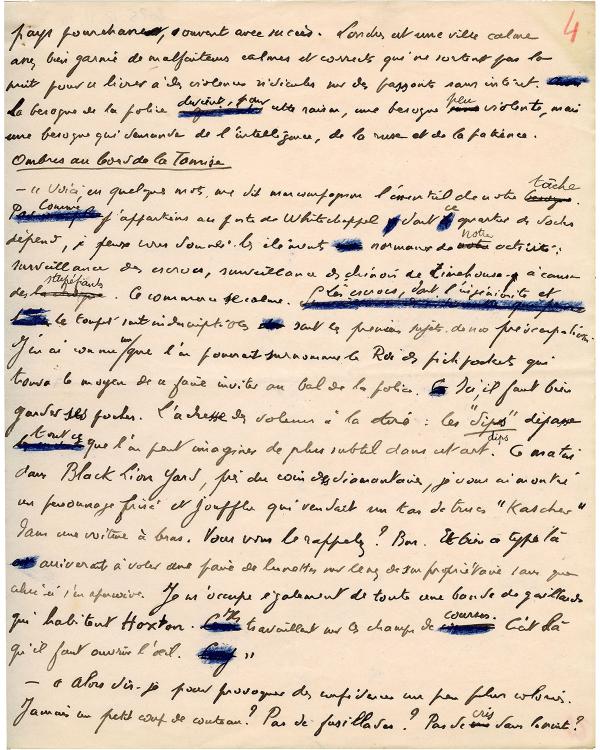 4
pays pourchassent, souvent avec succès. Londres est une ville calme
assez bien garnie de malfaiteurs calmes et corrects qui ne sortent pas la
nuit pour se livrer à des violences ridicules sur des passants sans intérêt.
la besogne de la police devient, pour cette raison, une besogne peu violente, mais
une besogne qui demande de l'intelligence, de la ruse et de la patience.
Ombres au bord de la Tamise
— « Voici en quelques mots, me dit mon compagnon l'essentiel de notre tâche.
Comme j'appartiens au poste de Whitechapel, dont ce quartier des docks
dépend, je peux vous donner les éléments normaux de notre activité :
surveillance des escrocs, surveillance des chinois de Limehouse à cause
des stupéfiants. Ce commerce se calme. Les escrocs, dont l'ingéniosité et
le toupet sont indescriptibles sont les premiers sujets de nos préoccupations.
J'en ai connu un que l'on pourrait surnommer le Roi des pickpockets qui
trouva le moyen de se faire inviter au bal de la police. Ici, il faut bien
garder ses poches. L'adresse des voleurs à la tire : les "dips" dépasse
dips
tout ce que l'on peut imaginer de plus subtil dans cet art. Ce matin
dans Black Lion Yard, près du coin des diamantaires, je vous ai montré
un personnage frisé et joufflu qui vendait un tas de trucs "Kascher"
dans une voiture à bras. Vous vous le rappelez ? Bon. Et bien ce type là
arriverait à voler une paire de lunettes sur le nez de son propriétaire sans que
celui-ci s'en aperçoive. Je m'occupe également de toute une bande de gaillards
qui habitent Hoxton. Ils travaillent sur les champs de courses. C'est là
qu'il faut ouvrir l'œil. »
— « Alors dis-je pour provoquer des confidences un peu plus colorées.
Jamais un petit coup de couteau ? Pas de fusillades ? Pas de cris dans la nuit ?